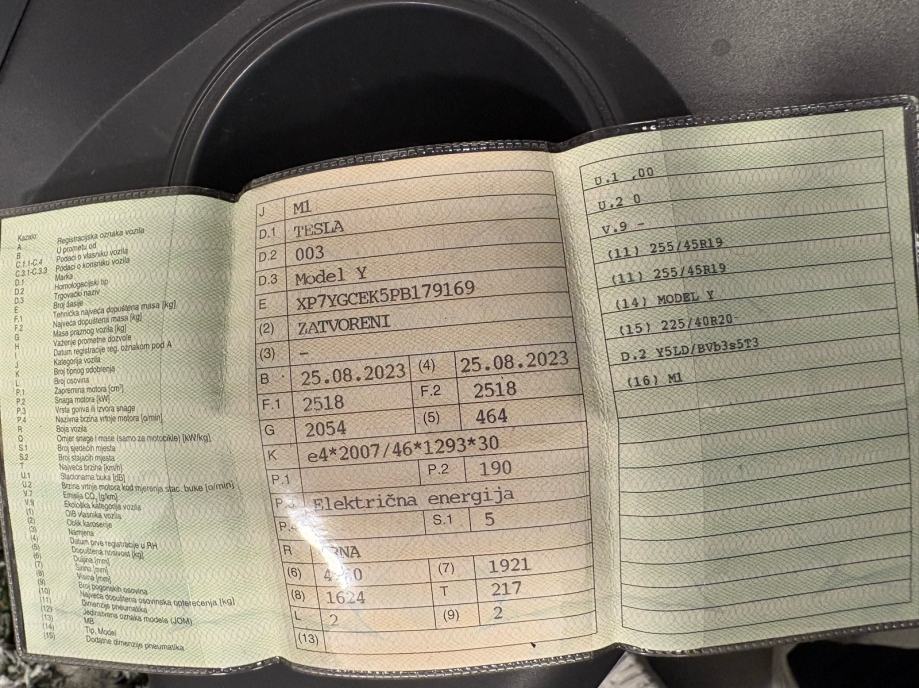 Kazalo:
A Registracijska oznaka vozila
B U prometu od
C.1.1-C.4 Podaci o vlasniku vozila
C.3.1-C.3.3 Podaci o korisniku vozila
D.1 Marka
D.2 Homologacijski tip
D.3 Trgovački naziv
E Broj šasije
F.1 Tehnička najveća dopuštena masa [kg]
F.2 Najveća dopuštena masa [kg]
G Masa praznog vozila [kg]
H Važenje prometne dozvole
I Datum registracije reg. oznakom pod A
J Kategorija vozila
K Broj tipnog odobrenja
L Broj osovina
P.1 Zapremina motora [cm³]
P.2 Snaga motora [kW]
P.3 Vrsta goriva ili izvora snage
P.4 Nazivna brzina vrtnje motora [o/min]
R Boja vozila
Q Omjer snage i mase (samo za motocikle) [kW/kg]
S.1 Broj sjedećih mjesta
S.2 Broj stajaćih mjesta
T Najveća brzina [km/h]
U.1 Stacionarna buka [dB]
U.2 Brzina vrtnje motora kod mjerenja stac. buke [o/min]
V.7 Emisija CO₂ [g/km]
V.9 Ekološka kategorija vozila
(1) OIB vlasnika vozila
(2) Oblik karoserije
(3) Namjena
(4) Datum prve registracije u RH
(5) Dopuštena nosivost [kg]
(6) Duljina [mm]
(7) Širina [mm]
(8) Visina [mm]
(9) Broj pogonskih osovina
(10) Najveća dopuštena osovinska opterećenja [kg]
(11) Dimenzije pneumatika
(12) Jedinstvena oznaka modela (JOM)
(13) MB
(14) Tip, Model
(15) Dodatne dimenzije pneumatika
J M1
D.1 TESLA
D.2 003
D.3 Model Y
E XP7YGCEK5PB179169
(2) ZATVORENI
(3) –
B 25.08.2023 (4) 25.08.2023
F.1 2518 F.2 2518
G 2054 (5) 464
K e4*2007/46*1293*30
P.1 P.2 190
Električna energija
S.1 5
R
(6) (7) 1921
(8) 1624 T 217
L 2 (9) 2
(13)
U.1 ,00
U.2 0
V.9 -
(11) 255/45R19
(11) 255/45R19
(14) MODEL Y
(15) 225/40R20-
D.2 Y5LD/BVb3s5T3
(16) M1